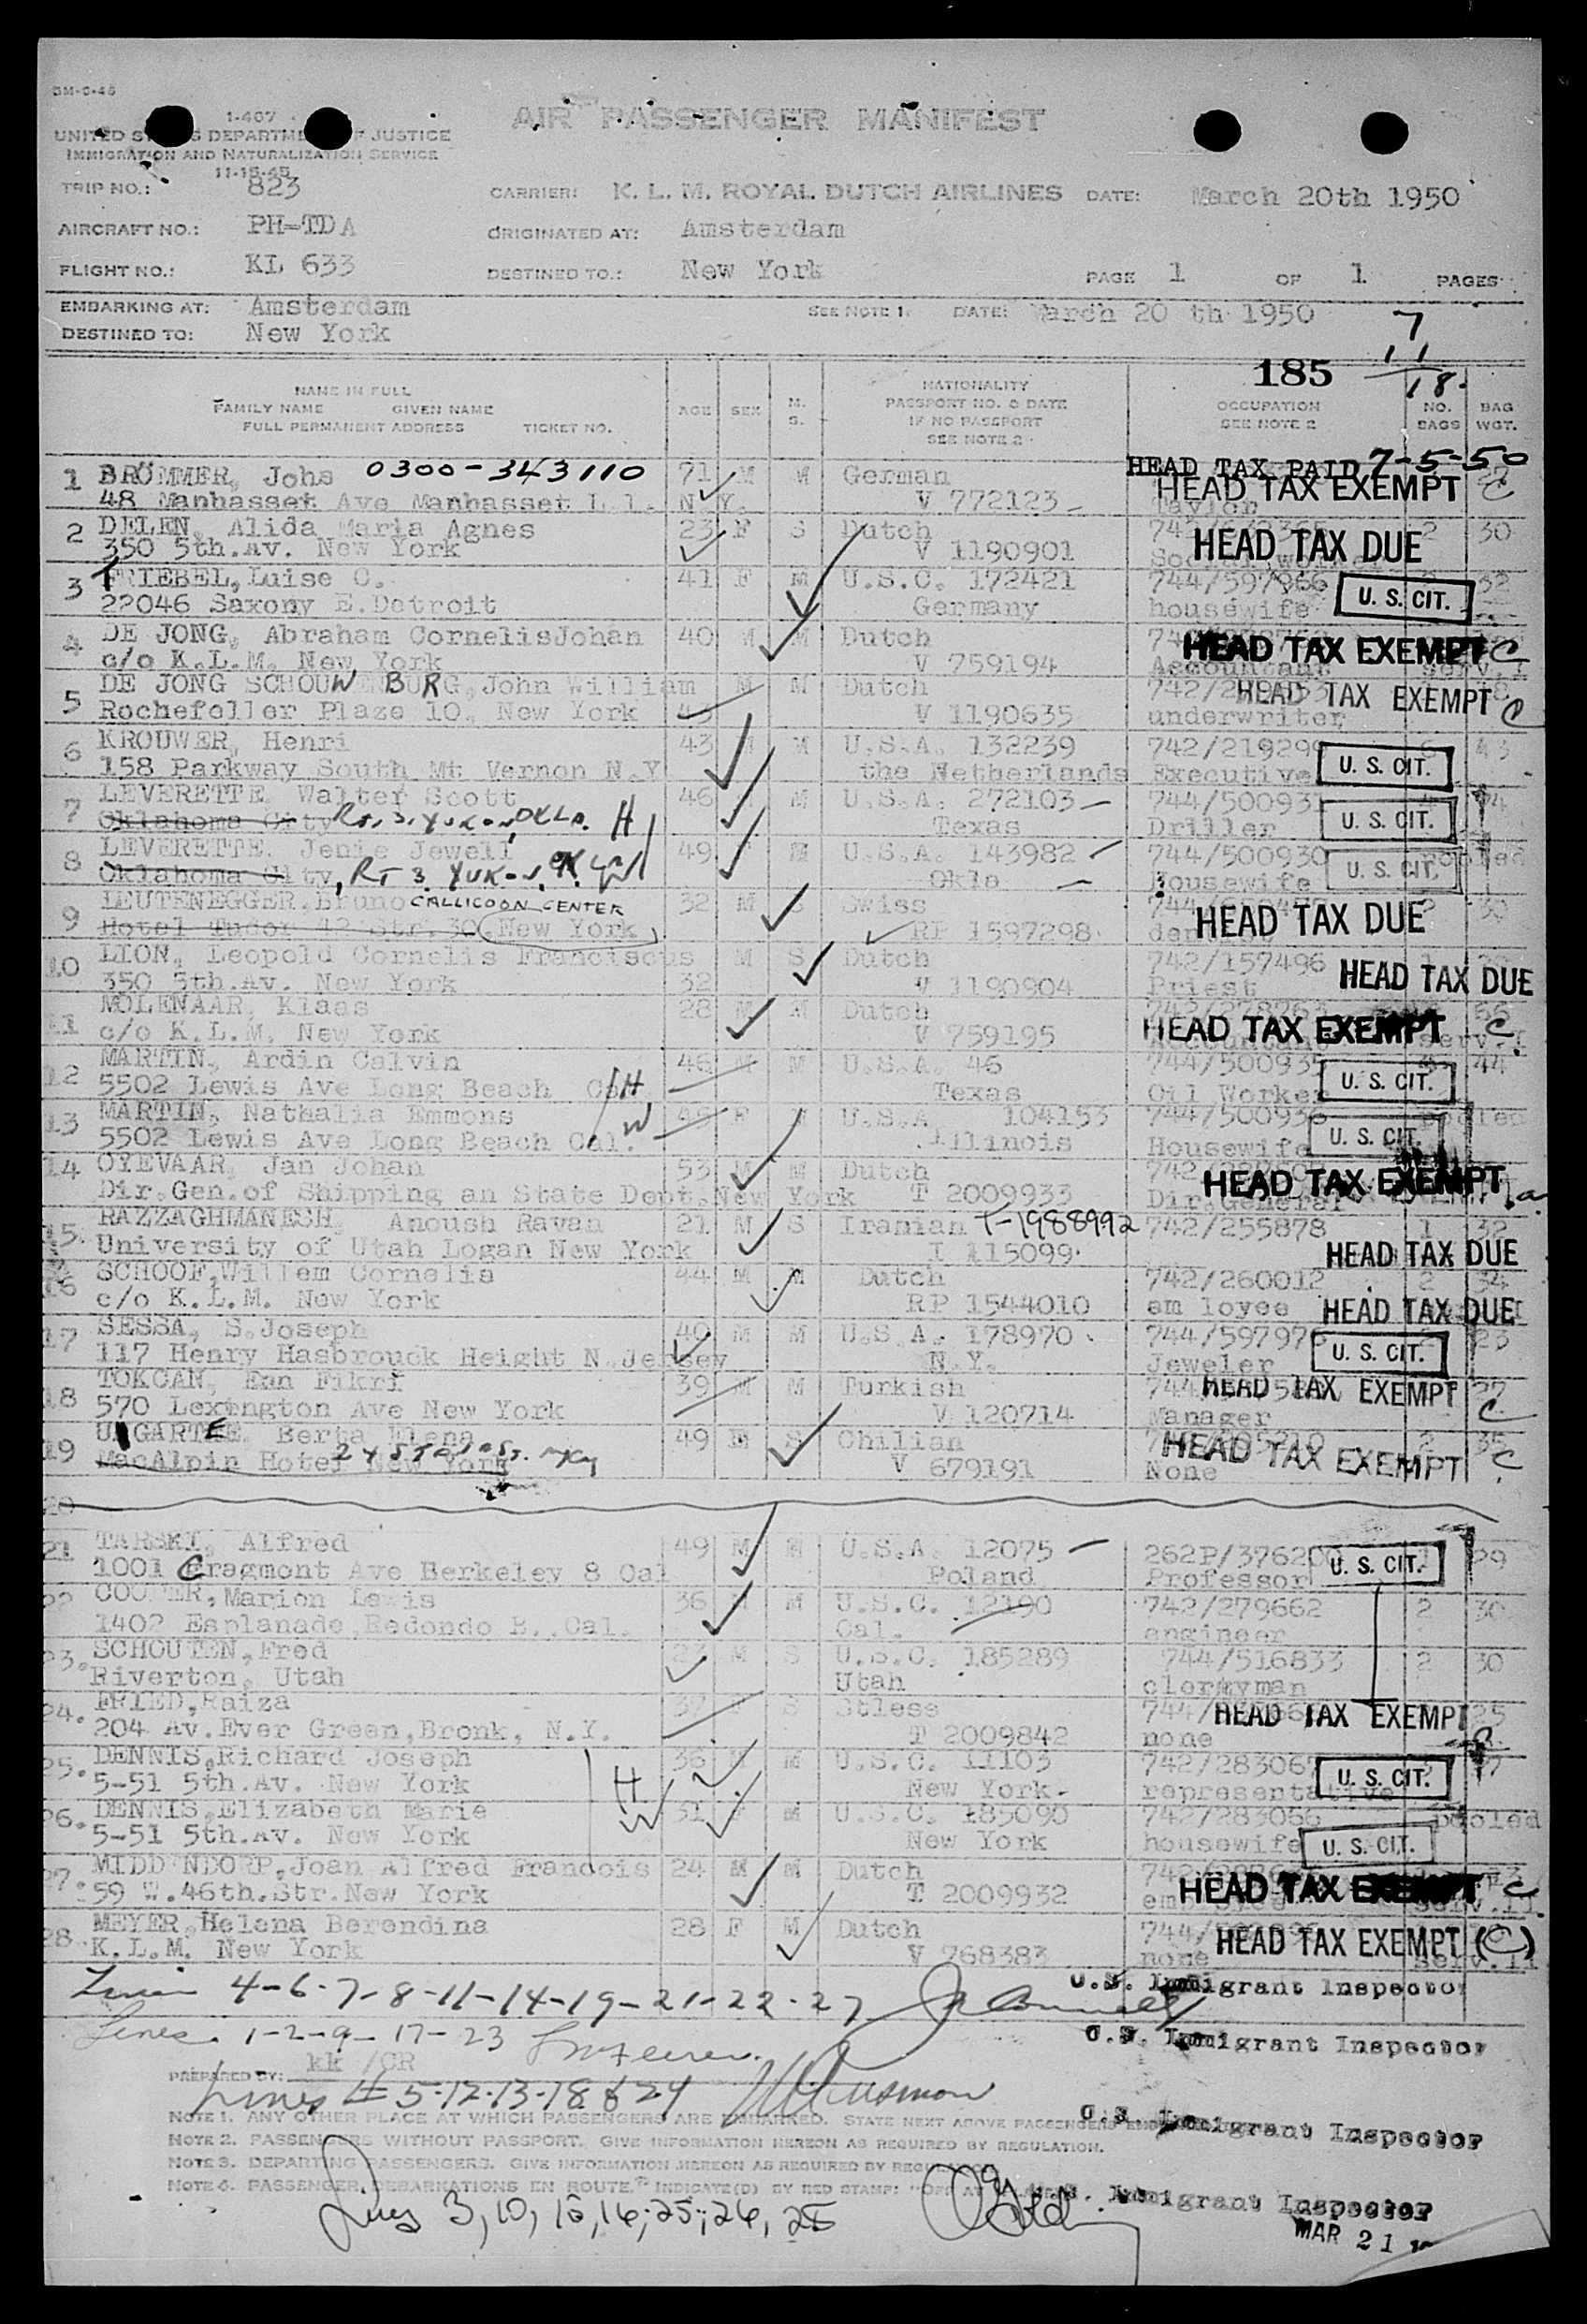 GM-9-46
1-407
UNITED S S DEPARTME F JUSTICE
IMMIGRATION AND NATURALIZATION SERVICE
11-15-45
AIR PASSENGER MANIFEST
TRIP NO.: 823 CARRIER: K. L. M. ROYAL DUTCH AIRLINES DATE: March 20th 1950
AIRCRAFT NO.: PH-TDA ORIGINATED AT: Amsterdam
FLIGHT NO.: KL 633 DESTINED TO.: New York PAGE 1 OF 1 PAGES
EMBARKING AT: Amsterdam SEE NOTE 1. DATE: March 20 th 1950
DESTINED TO: New York
7
11
18.
185
NAME IN FULL
FAMILY NAME GIVEN NAME
FULL PERMANENT ADDRESS TICKET NO.
AGE SEX M. S.
NATIONALITY
PASSPORT NO. & DATE
IF NO PASSPORT
SEE NOTE 2
OCCUPATION
SEE NOTE 2
NO. BAGS
BAG WGT.
1 BRÖMMER, Johs 0300-343110 71 M M German HEAD TAX PAID 7-5-50
48 Manhasset Ave Manhasset L.I. N.Y. V 772123 Taylor HEAD TAX EXEMPT C
2 DELEN, Alida Maria Agnes 23 F S Dutch 2 30
350 5th.Av. New York V 1190901 HEAD TAX DUE
3 FRIEBEL, Luise O. 41 F M U.S.C. 172421 744/597966 32
22046 Saxony E.Detroit Germany housewife U. S. CIT.
4 DE JONG, Abraham CornelisJohan 40 M M Dutch HEAD TAX EXEMPT C
c/o K.L.M. New York V 759194 Accountant serv.
5 DE JONG SCHOUWENBURG, John William M M Dutch HEAD TAX EXEMPT C
Rochefeller Plaze 10, New York 43 V 1190635 underwriter
6 KROUWER, Henri 43 M M U.S.A. 132239 742/219299 6 43
158 Parkway South Mt Vernon N.Y. the Netherlands Executive U. S. CIT.
7 LEVERETTE, Walter Scott 46 M U.S.A. 272103 744/500931
Oklahoma City RT. 3. YUKON, OKLA. H Texas Driller U. S. CIT.
8 LEVERETTE, Jenie Jewell 49 M U.S.A. 143982 744/500930 pooled
Oklahoma City, RT 3 YUKON, OK W Okla Housewife U. S. CIT.
9 LEUTENEGGER, Bruno CALLICOON CENTER 32 M S Swiss 2 30
Hotel Tudor 42 Str. 30 New York RP 1597298 HEAD TAX DUE
10 LION, Leopold Cornelis Franciscus M S Dutch 742/157496
350 5th.Av. New York 32 V 1190904 Priest HEAD TAX DUE
11 MOLENAAR, Klaas 28 M M Dutch 66
c/o K.L.M. New York V 759195 HEAD TAX EXEMPT C
12 MARTIN, Ardin Calvin 46 M M U.S.A. 46 744/500935 44
5502 Lewis Ave Long Beach Cal H Texas Oil Worker U. S. CIT.
13 MARTIN, Nathalia Emmons 45 F M U.S.A. 104153 744/500936 pooled
5502 Lewis Ave Long Beach Cal. W Illinois Housewife U. S. CIT.
14 OYEVAAR, Jan Johan 53 M M Dutch
Dir.Gen.of Shipping an State Dept.New York T 2009933 Dir.General HEAD TAX EXEMPT a
15. RAZZAGHMANESH, Anoush Ravan 21 M S Iranian T-1988992 742/255878 1 32
University of Utah Logan New York I 115099 HEAD TAX DUE
16 SCHOOF, Willem Cornelis 44 M M Dutch 742/260012 2 34
c/o K.L.M. New York RP 1544010 em loyee HEAD TAX DUE
17 SESSA, S.Joseph 40 M M U.S.A. 178970 744/597976 23
117 Henry Hasbrouck Height N.Jersey N.Y. Jeweler U. S. CIT.
18 TOKCAN, Ean Fikri 39 M M Turkish HEAD TAX EXEMPT 27
570 Lexington Ave New York V 120714 Manager C
19 UGARTE Berta Elena 49 F S Chilian 2 35
MacAlpin Hotel New York V 679191 None HEAD TAX EXEMPT C
20
21 TARSKI, Alfred 49 M M U.S.A. 12075 262P/376200 29
1001 Cragmont Ave Berkeley 8 Cal Poland Professor U. S. CIT.
22 COOPER, Marion Lewis 36 M M U.S.C. 12190 742/279662 2 30
1402 Esplanade, Redondo B., Cal. Cal. engineer
23. SCHOUTEN, Fred 23 M S U.S.C. 185289 744/516833 2 30
Riverton, Utah Utah clergyman
24. FRIED, Raiza 37 F S Stless 25
204 Av.Ever Green, Bronk, N.Y. T 2009842 none HEAD TAX EXEMPT
25. DENNIS, Richard Joseph 36 M M U.S.C. 11103 742/283067
5-51 5th.Av. New York H New York representative U. S. CIT.
26. DENNIS, Elizabeth Marie 31 F M U.S.C. 185090 742/283066 pooled
5-51 5th.Av. New York W New York housewife U. S. CIT.
27. MIDDENDORP, Joan Alfred Francois 24 M M Dutch
59 W.46th.Str.New York T 2009932 HEAD TAX EXEMPT C
28. MEYER, Helena Berendina 28 F M Dutch
K.L.M. New York V 768383 none HEAD TAX EXEMPT (C)
4-6-7-8-11-14-19-21-22-27 U.S. Immigrant Inspector
Lines 1-2-9-17-23 U.S. Immigrant Inspector
PREPARED BY: kk /CR
Lines # 5-12-13-18 & 24 U.S. Immigrant Inspector
NOTE 1. ANY OTHER PLACE AT WHICH PASSENGERS ARE EMBARKED. STATE NEXT ABOVE PASSENGERS
NOTE 2. PASSENGERS WITHOUT PASSPORT. GIVE INFORMATION HEREON AS REQUIRED BY REGULATION.
NOTE 3. DEPARTING PASSENGERS. GIVE INFORMATION HEREON AS REQUIRED BY REGULATION
NOTE 4. PASSENGER DEBARKATIONS EN ROUTE. INDICATE(D) BY RED STAMP: "OFF AT
Lines 3, 10, 15, 16, 25, 26, 28 U.S. Immigrant Inspector
MAR 21